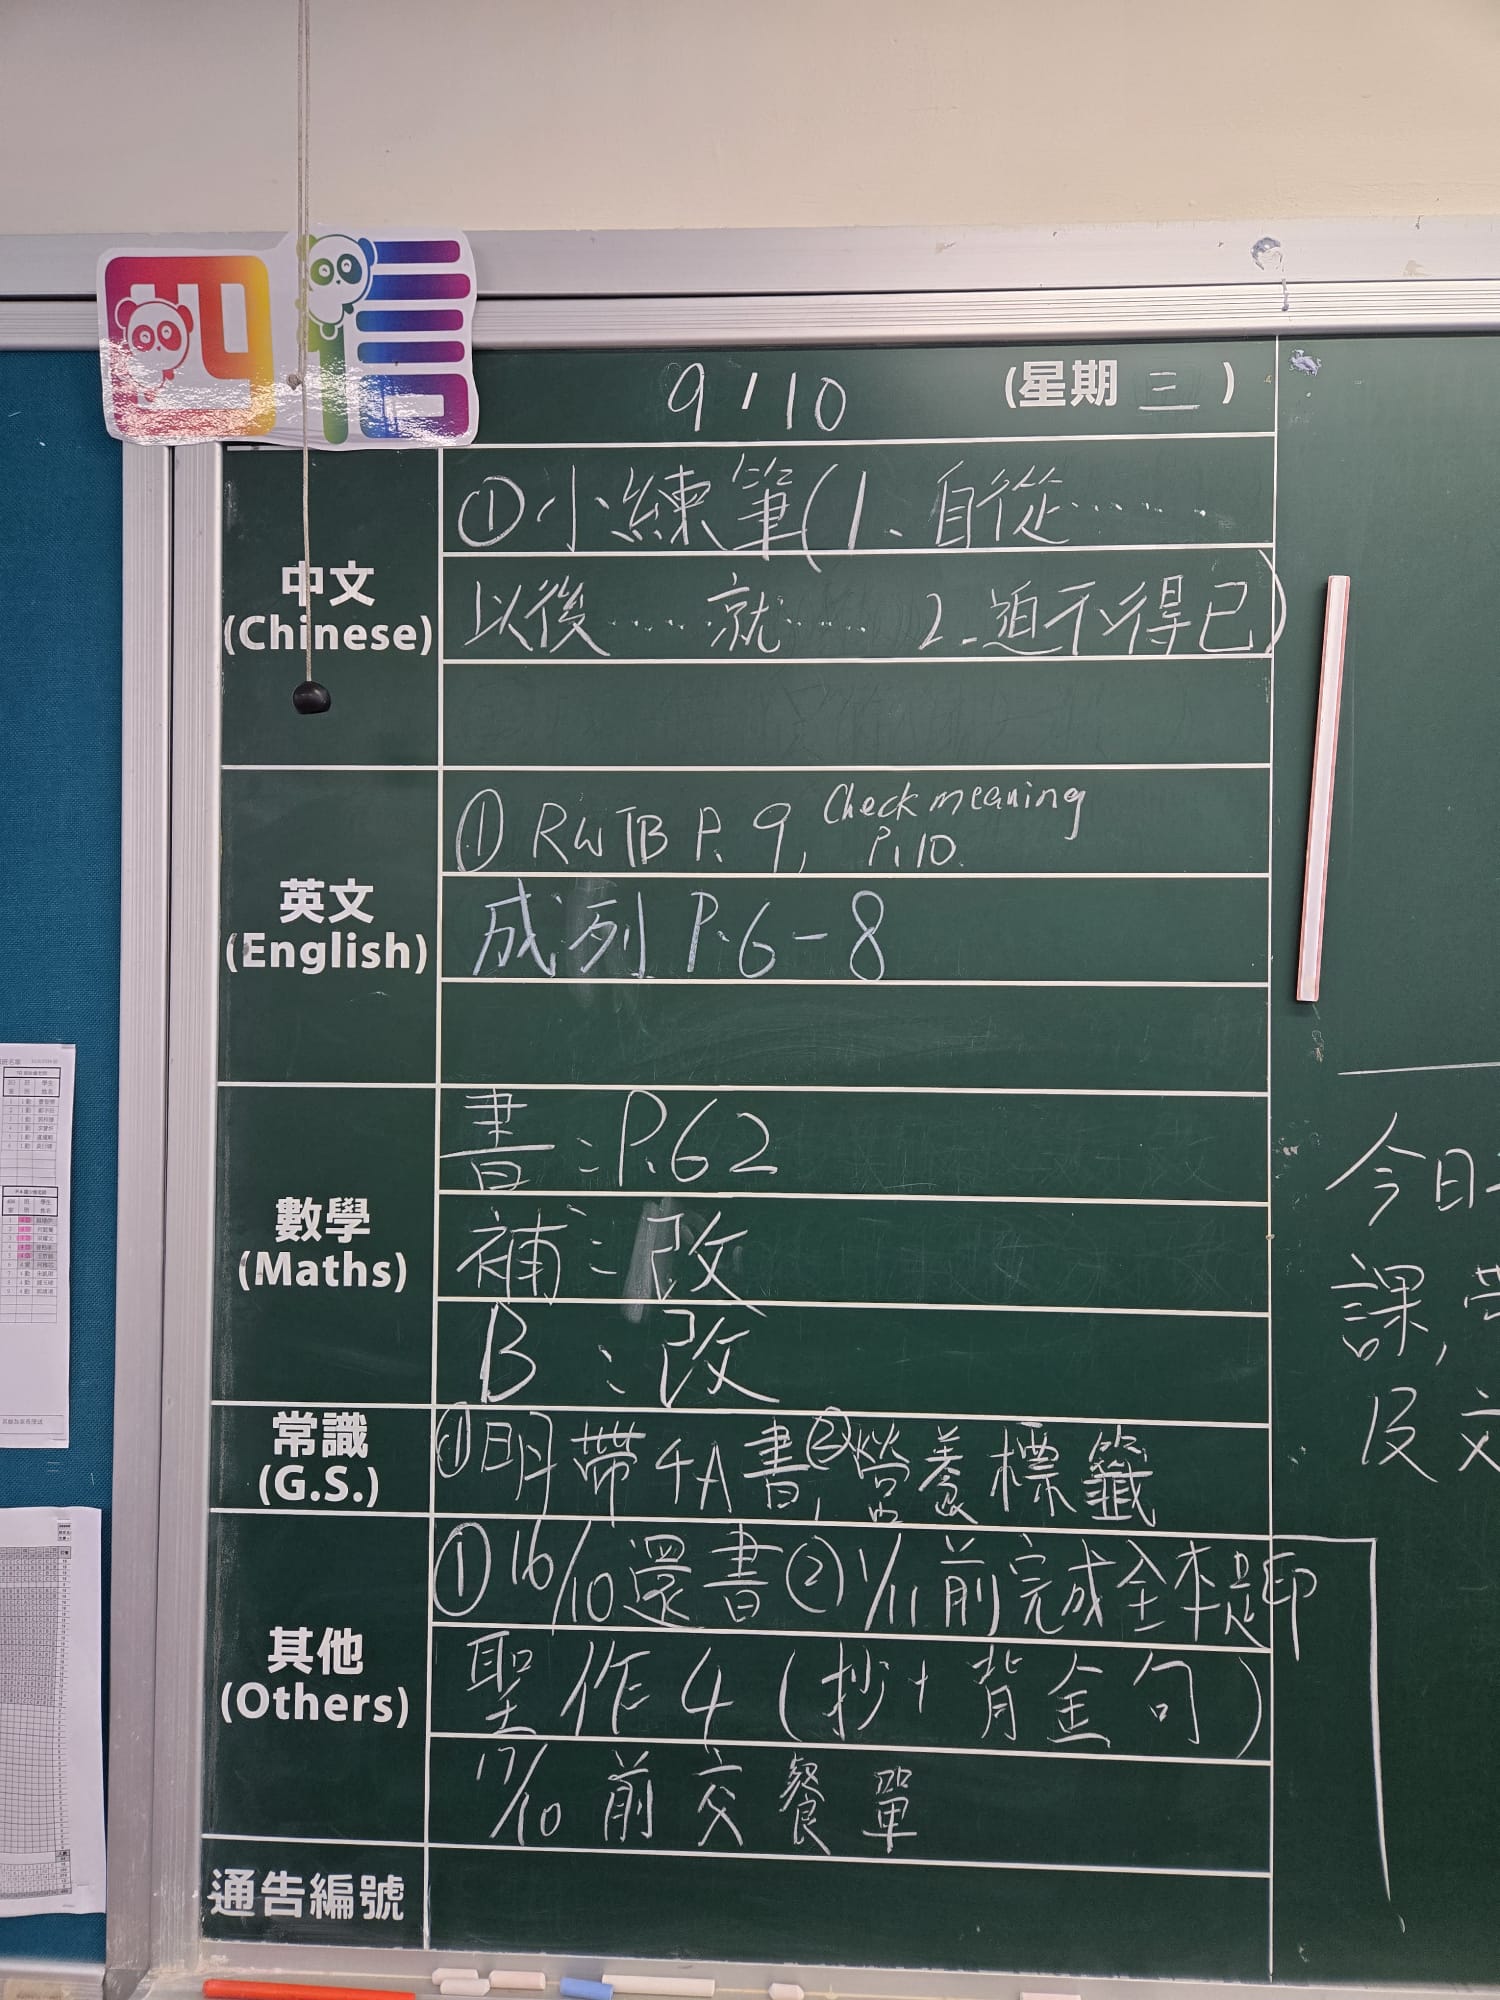 四信
9/10 (星期三)
中文
(Chinese)
①小練筆(1、自從……
以後……就…… 2.迫不得已)
英文
(English)
① RWTB P.9, Check meaning P.10
成列 P.6-8
數學
(Maths)
書:P.62
補:改
B:改
常識
(G.S.)
①明帶4A書,②營養標籤
其他
(Others)
①16/10還書②1/11前完成全本足印
聖作4(抄+背金句)
17/10前交餐單
通告編號
今日
課,
及文